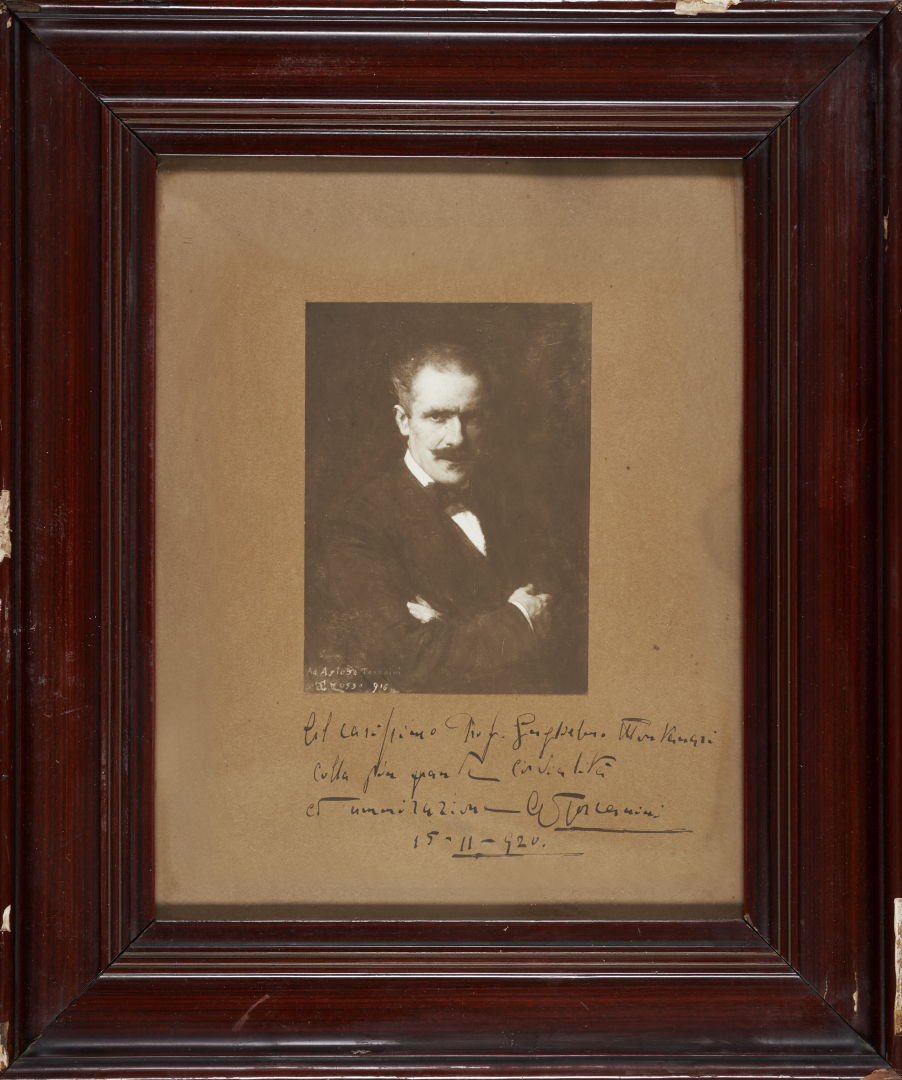 Ad Arturo Toscanini
Rossi 916
Al carissimo Prof. Guglielmo Montanari
colla più grande cordialità
ed ammirazione A Toscanini
15-11-920.